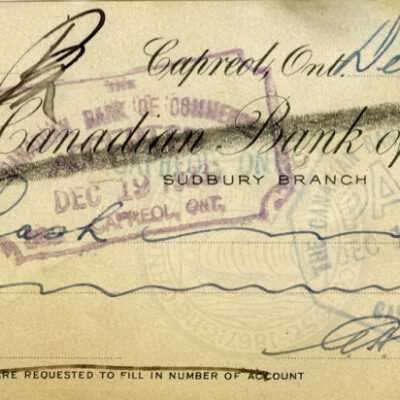 Capreol, Ont. De
Canadian Bank of
SUDBURY BRANCH
THE
CANADIAN BANK OF COMMERCE
DEC 19
CAPREOL, ONT.
Cash
THE CANADIAN BANK
PAID
DEC 1
ARE REQUESTED TO FILL IN NUMBER OF ACCOUNT